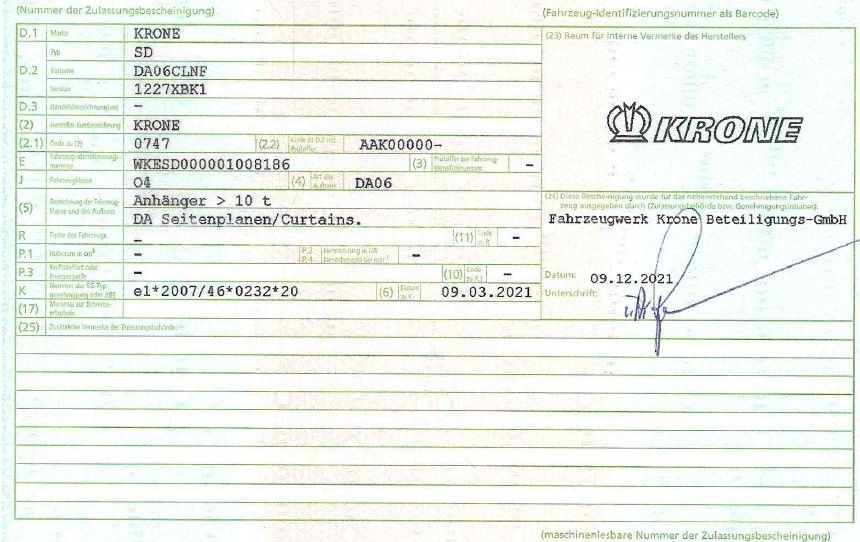 (Nummer der Zulassungsbescheinigung)
(Fahrzeug-Identifizierungsnummer als Barcode)
D.1 Marke KRONE
Typ SD
D.2 Variante DA06CLNF
Version 1227XBK1
D.3 Handelsbezeichnung(en) –
(2) Hersteller-Kurzbezeichnung KRONE
(2.1) Code zu (2) 0747 (2.2) Code zu D.2 mit Prüfziffer AAK00000-
E Fahrzeug-Identifizierungsnummer WKESD000001008186 (3) Prüfziffer zur Fahrzeug-Identifizierungsnr. –
J Fahrzeugklasse O4 (4) Art des Aufbaus DA06
(5) Bezeichnung der Fahrzeugklasse und des Aufbaus Anhänger > 10 t
DA Seitenplanen/Curtains.
R Farbe des Fahrzeugs – (11) Code zu R –
P.1 Hubraum in cm³ – P.2 Nennleistung in kW P.4 Nenndrehzahl bei min⁻¹ –
P.3 Kraftstoffart oder Energiequelle – (10) Code zu P.3 –
K Nummer der EG-Typgenehmigung oder ABE e1*2007/46*0232*20 (6) Datum zu K 09.03.2021
(17) Merkmal zur Betriebserlaubnis
(25) Zusätzliche Vermerke der Zulassungsbehörde:
(23) Raum für interne Vermerke des Herstellers
KRONE
(24) Diese Bescheinigung wurde für das nebenstehend beschriebene Fahr-
zeug ausgegeben durch (Zulassungsbehörde bzw. Genehmigungsinhaber):
Fahrzeugwerk Krone Beteiligungs-GmbH
Datum: 09.12.2021
Unterschrift:
(maschinenlesbare Nummer der Zulassungsbescheinigung)